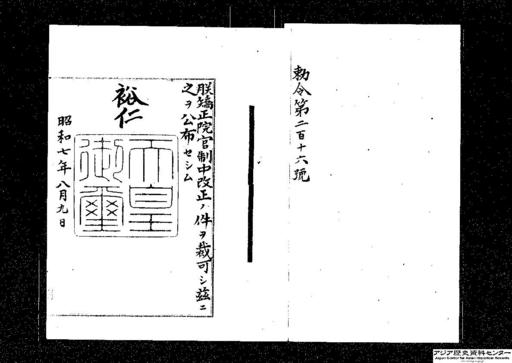 勅令第二百十六號
朕矯正院官制中改正ノ件ヲ裁可シ茲ニ
之ヲ公布セシム
裕仁
天皇御璽
昭和七年八月九日
アジア歴史資料センター
Japan Center for Asian Historical Records